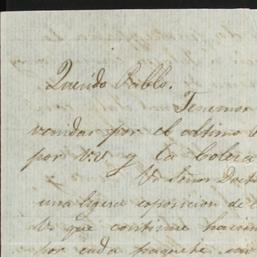 Querido Pablo.
Tenemos
vendar por el ultimo
por VV y la Colera
Sr Señor Doct
una ligera esposicion de
que continue hacien
por cada paquete